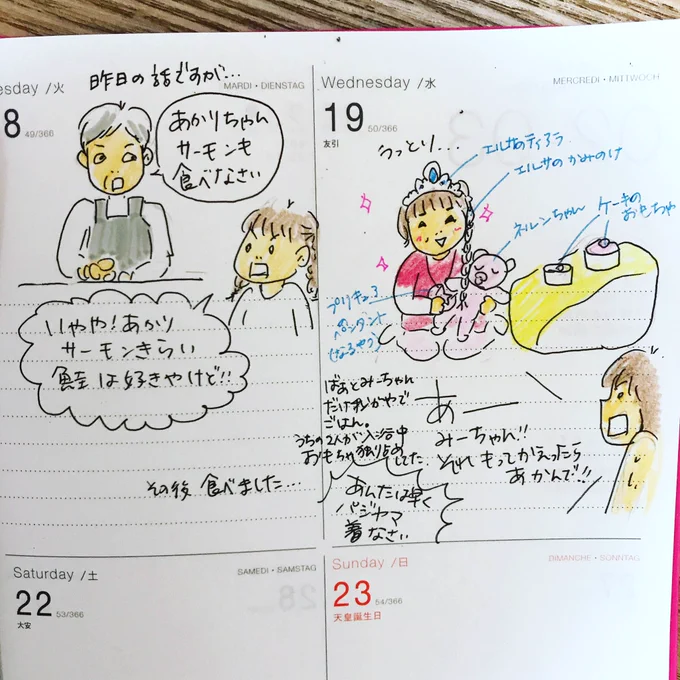 esday /火
MARDI・DIENSTAG
8
49/366
昨日の話ですが…
あかりちゃん
サーモンも
食べなさい
いやや!あかり
サーモンきらい
鮭は好きやけど!!
その後 食べました…
Wednesday /水
MERCREDI・MITTWOCH
19
50/366
友引
うっとり…
エルサのティアラ
エルサのかみのけ
ネルンちゃん
ケーキの
おもちゃ
プリキュア
ペンダント
ばぁとみーちゃん
だけ
で
ごはん。
うちの2人が入浴中
おもちゃ独り占め
してた
あーー
みーちゃん!!
それ もってかえったら
あかんで!!
あんたは早く
パジャマ
着なさい
Saturday /土
SAMEDI・SAMSTAG
22
53/366
大安
Sunday /日
DIMANCHE・SONNTAG
23
54/366
天皇誕生日